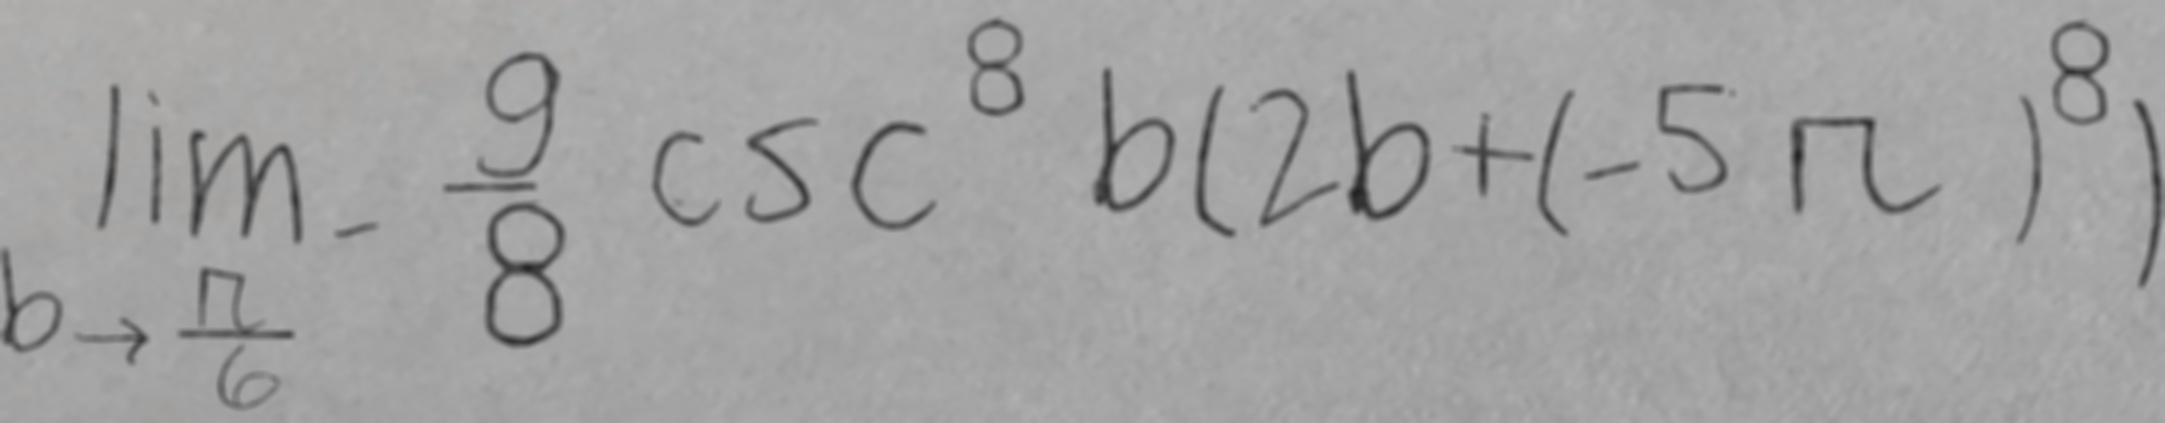 \lim_{b \to \frac{\pi}{6}} - \frac{9}{8} \csc^{8} b(2b+(-5\pi)^{8})